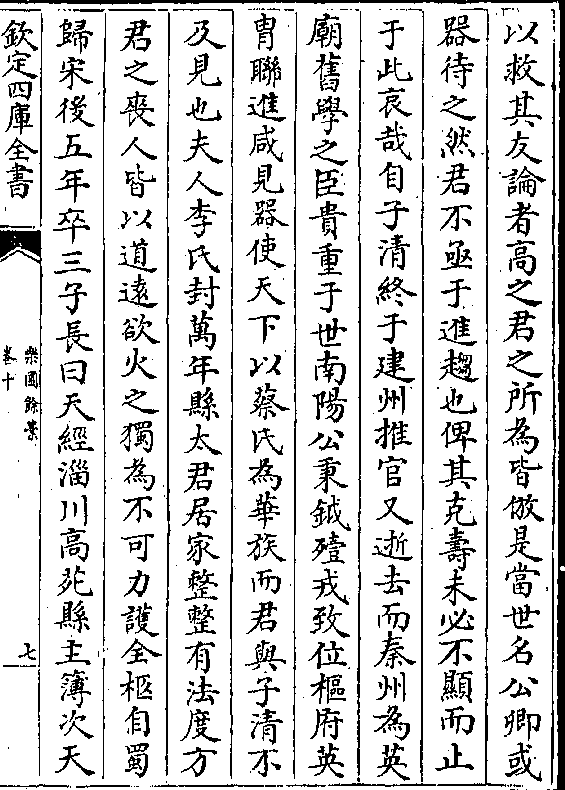 以救其友論者高之君之所為皆倣是當世名公卿或
器待之然君不亟于進趨也俾其克壽未必不顯而止
于此哀哉自子清終于建州推官又逝去而秦州為英
廟舊學之臣貴重于世南陽公秉鉞殪戎致位樞府英
胄聯進咸見器使天下以蔡氏為華族而君與子清不
及見也夫人李氏封萬年縣太君居家整整有法度方
君之喪人皆以道遠欲火之獨為不可力護全柩自蜀
歸宋後五年卒三子長曰天經淄川高苑縣主簿次天
欽定四庫全書
樂圃餘藁
卷十
七